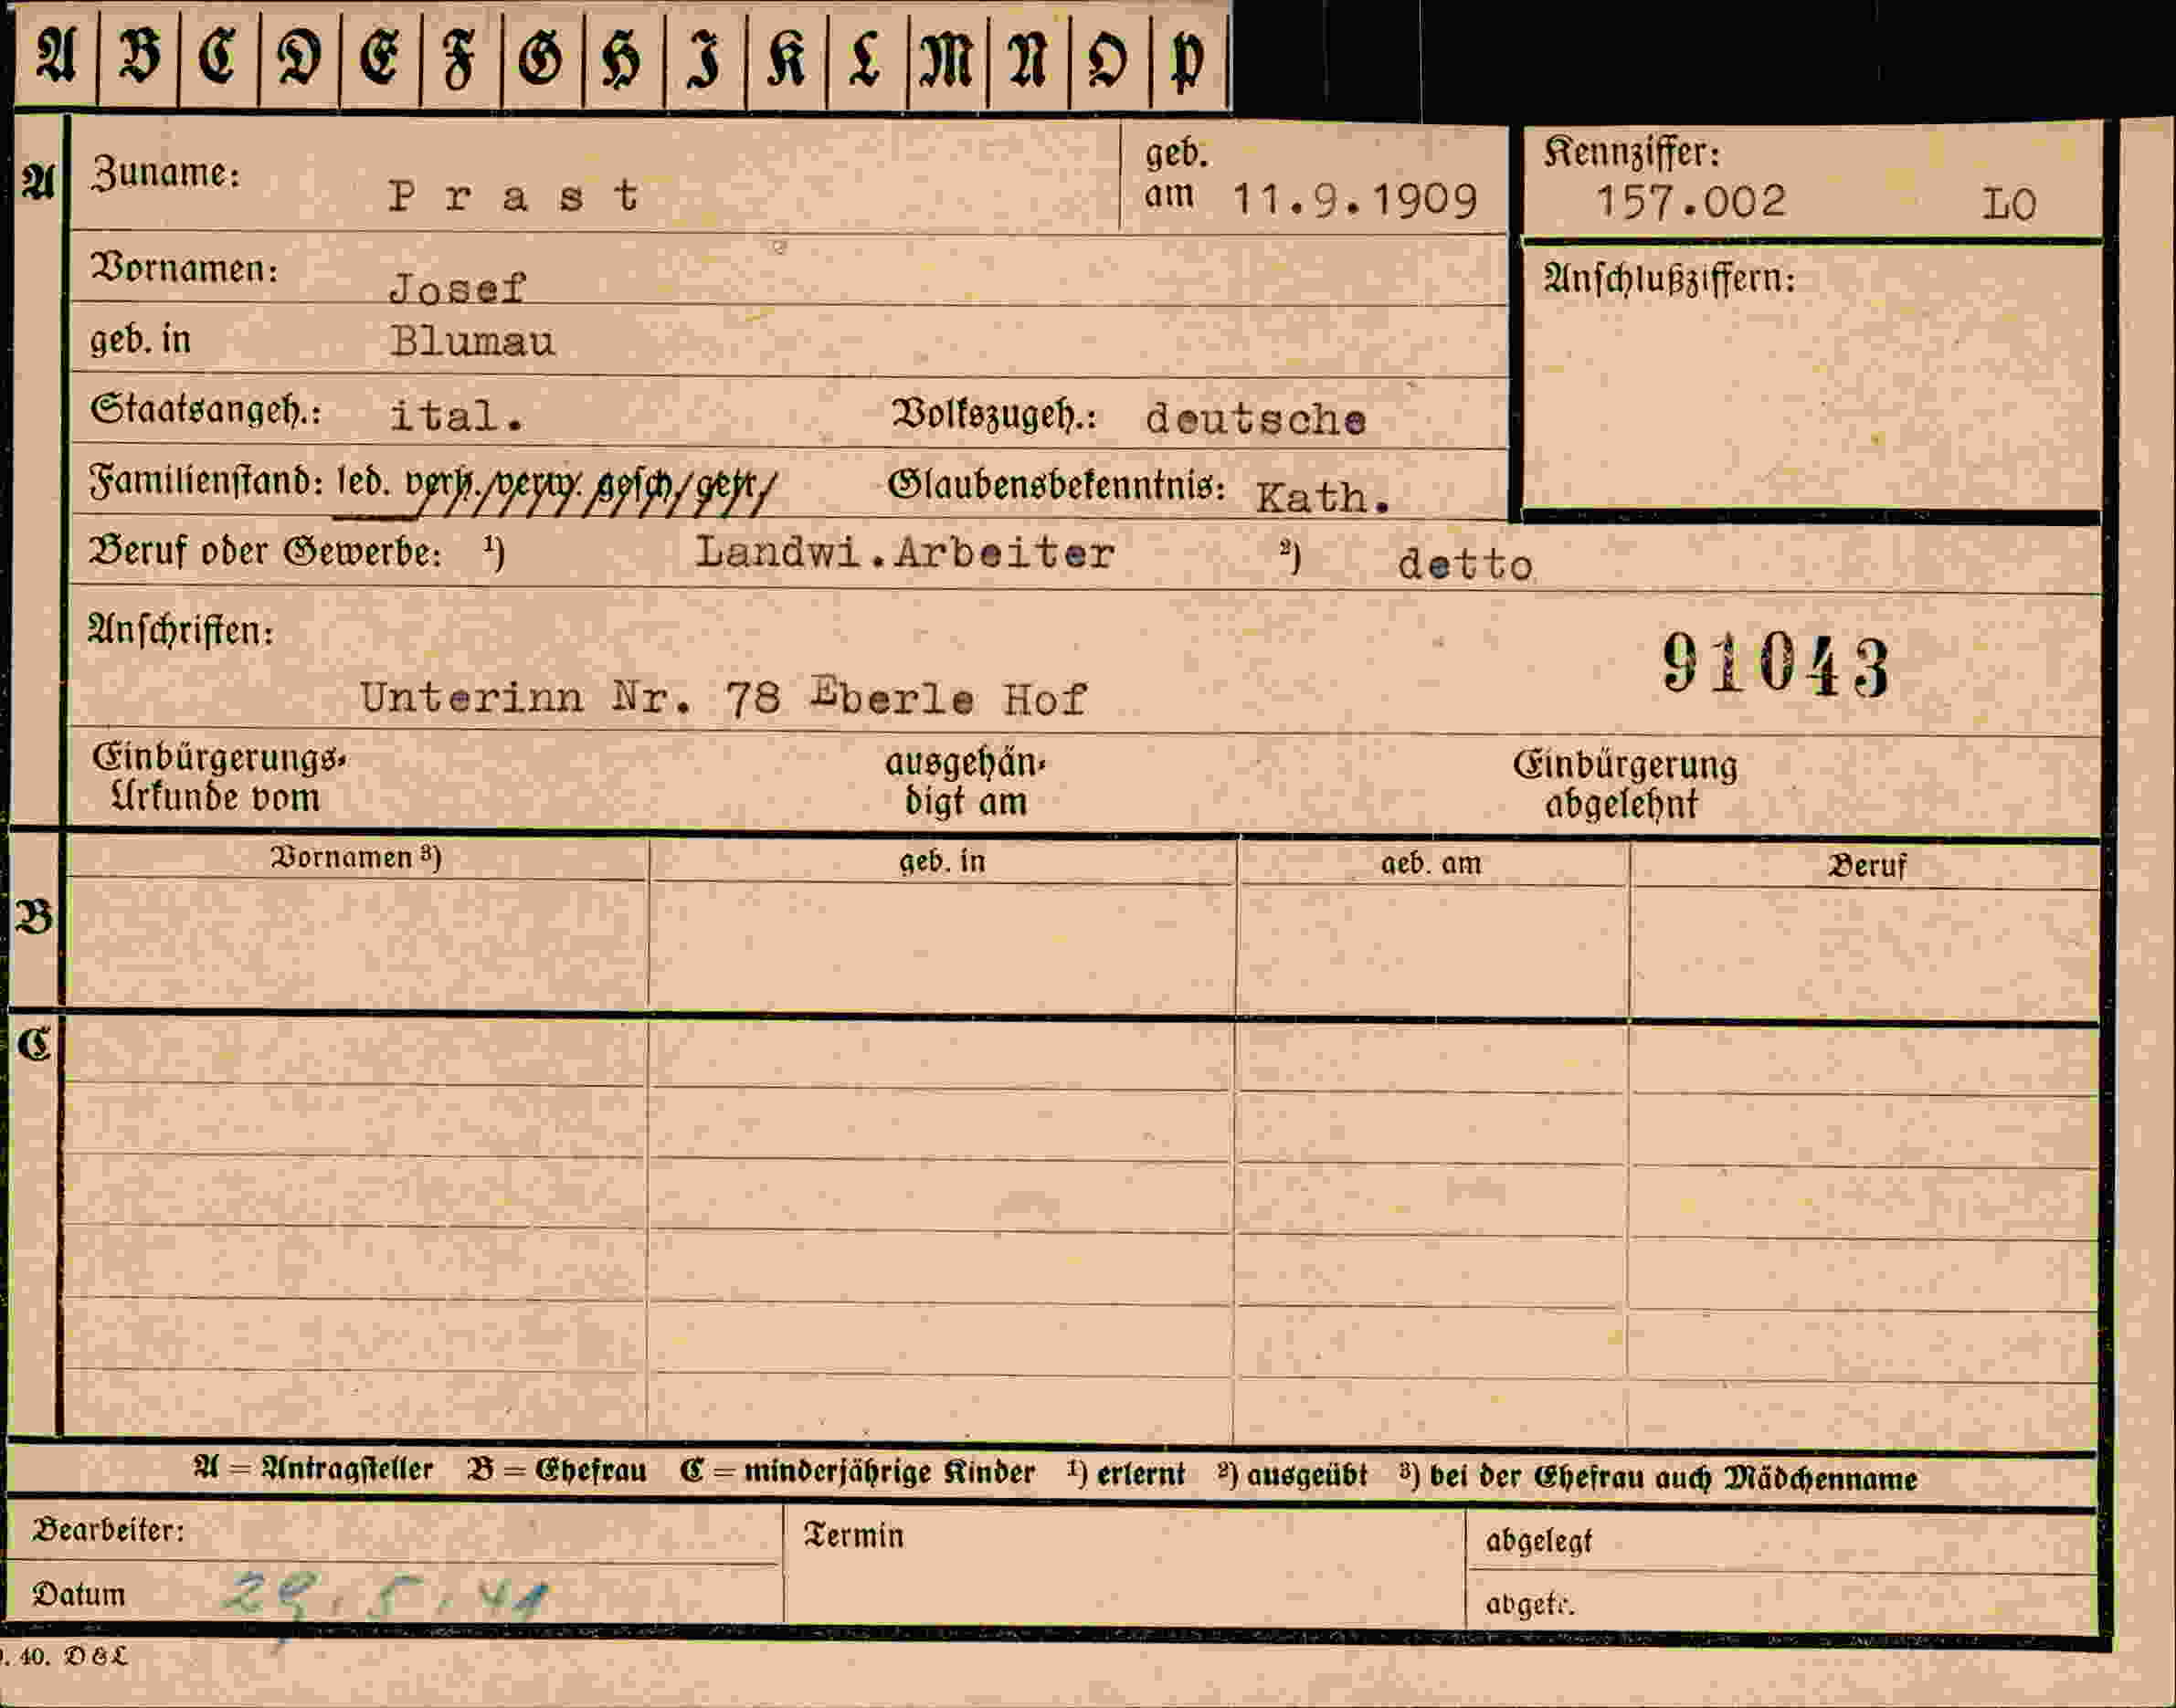 A B C D E F G H I K L M N O P
A Zuname: Prast geb. am 11.9.1909 Kennziffer: 157.002 LO
Vornamen: Josef Anschlußziffern:
geb. in Blumau
Staatsangeh.: ital. Volkszugeh.: deutsche
Familienstand: led. verh. verw. gesch. getr. Glaubensbekenntnis: Kath.
Beruf oder Gewerbe: ¹) Landwi.Arbeiter ²) detto
Anschriften: 91043
Unterinn Nr. 78 Eberle Hof
Einbürgerungs- ausgehän- Einbürgerung
Urkunde vom digt am abgelehnt
Vornamen ³) geb. in geb. am Beruf
B
C
A = Antragsteller B = Ehefrau C = minderjährige Kinder ¹) erlernt ²) ausgeübt ³) bei der Ehefrau auch Mädchenname
Bearbeiter: Termin abgelegt
Datum 29.5.41 abgetr.
. 40. D & L